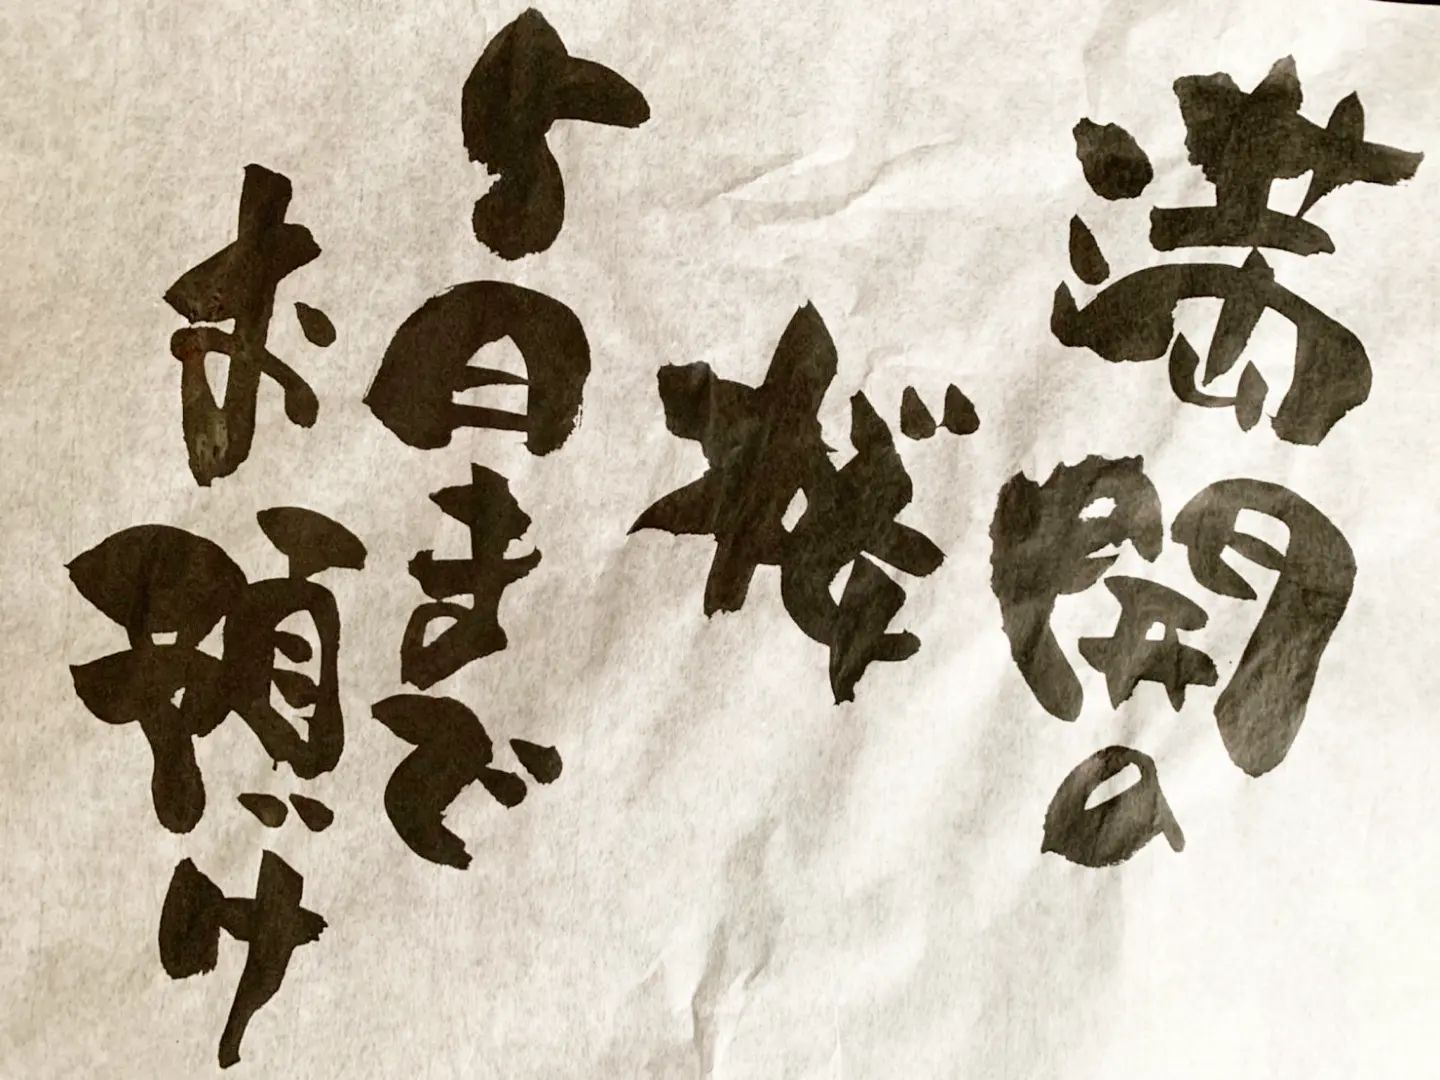 満開の
桜
日まで
お預け